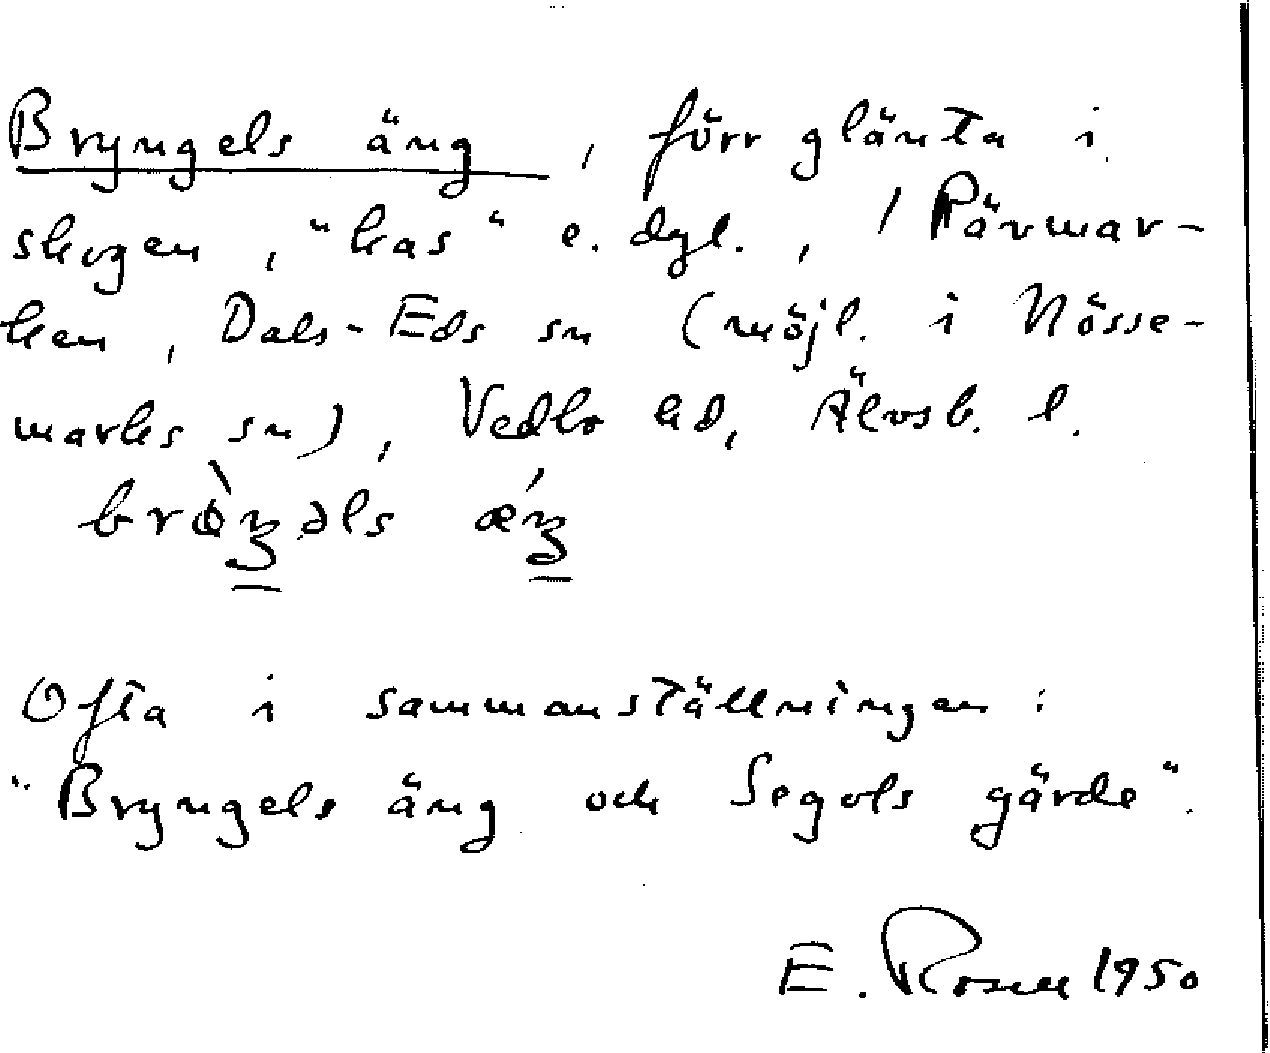 Bryngels äng, förr glänta i
skogen, "kas" e. dyl., i Pärmar-
ken, Dals-Eds sn (möjl. i Nösse-
marks sn), Vedbo hd, Älvsb. l.
Ofta i sammanställningen:
"Bryngels äng och Segols gärde".
E. Rosell 1950